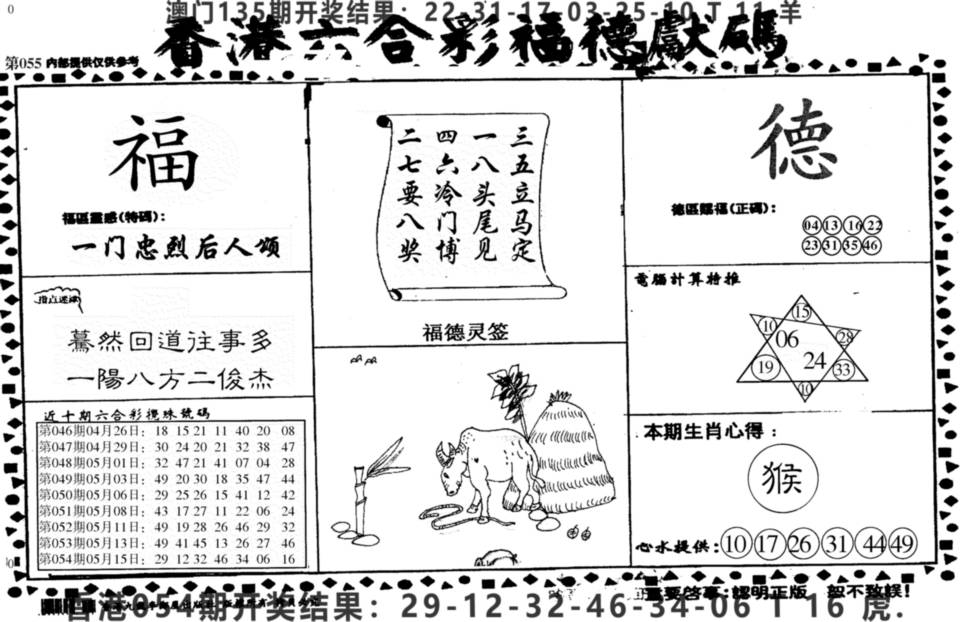 0
澳门135期开奖结果：22-31-17-03-25-10 T 11 羊
香港六合彩福德獻碼
第055 内部提供仅供参考
福
福區靈感(特碼)：
一门忠烈后人颂
指点迷津
驀然回道往事多
一陽八方二俊杰
近十期六合彩攪珠號碼
第046期04月26日：18 15 21 11 40 20 08
第047期04月29日：30 24 20 21 32 38 47
第048期05月01日：32 47 21 41 07 04 28
第049期05月03日：49 20 30 18 35 47 44
第050期05月06日：29 25 26 15 41 12 42
第051期05月08日：43 17 27 11 22 06 24
第052期05月11日：49 19 28 26 46 29 32
第053期05月13日：49 41 45 13 26 27 46
第054期05月15日：29 12 32 46 34 06 16
三五立马定
一八头尾见
四六冷门博
二七要八奖
福德灵签
德
德區賜福(正碼)：
04 13 16 22
23 31 35 46
電腦計算特推
15
10
06
28
24
19
33
10
本期生肖心得：
猴
心水提供：10 17 26 31 44 49
重要啓事：認明正版 恕不致誤！
香港054期开奖结果：29-12-32-46-34-06 T 16 虎.